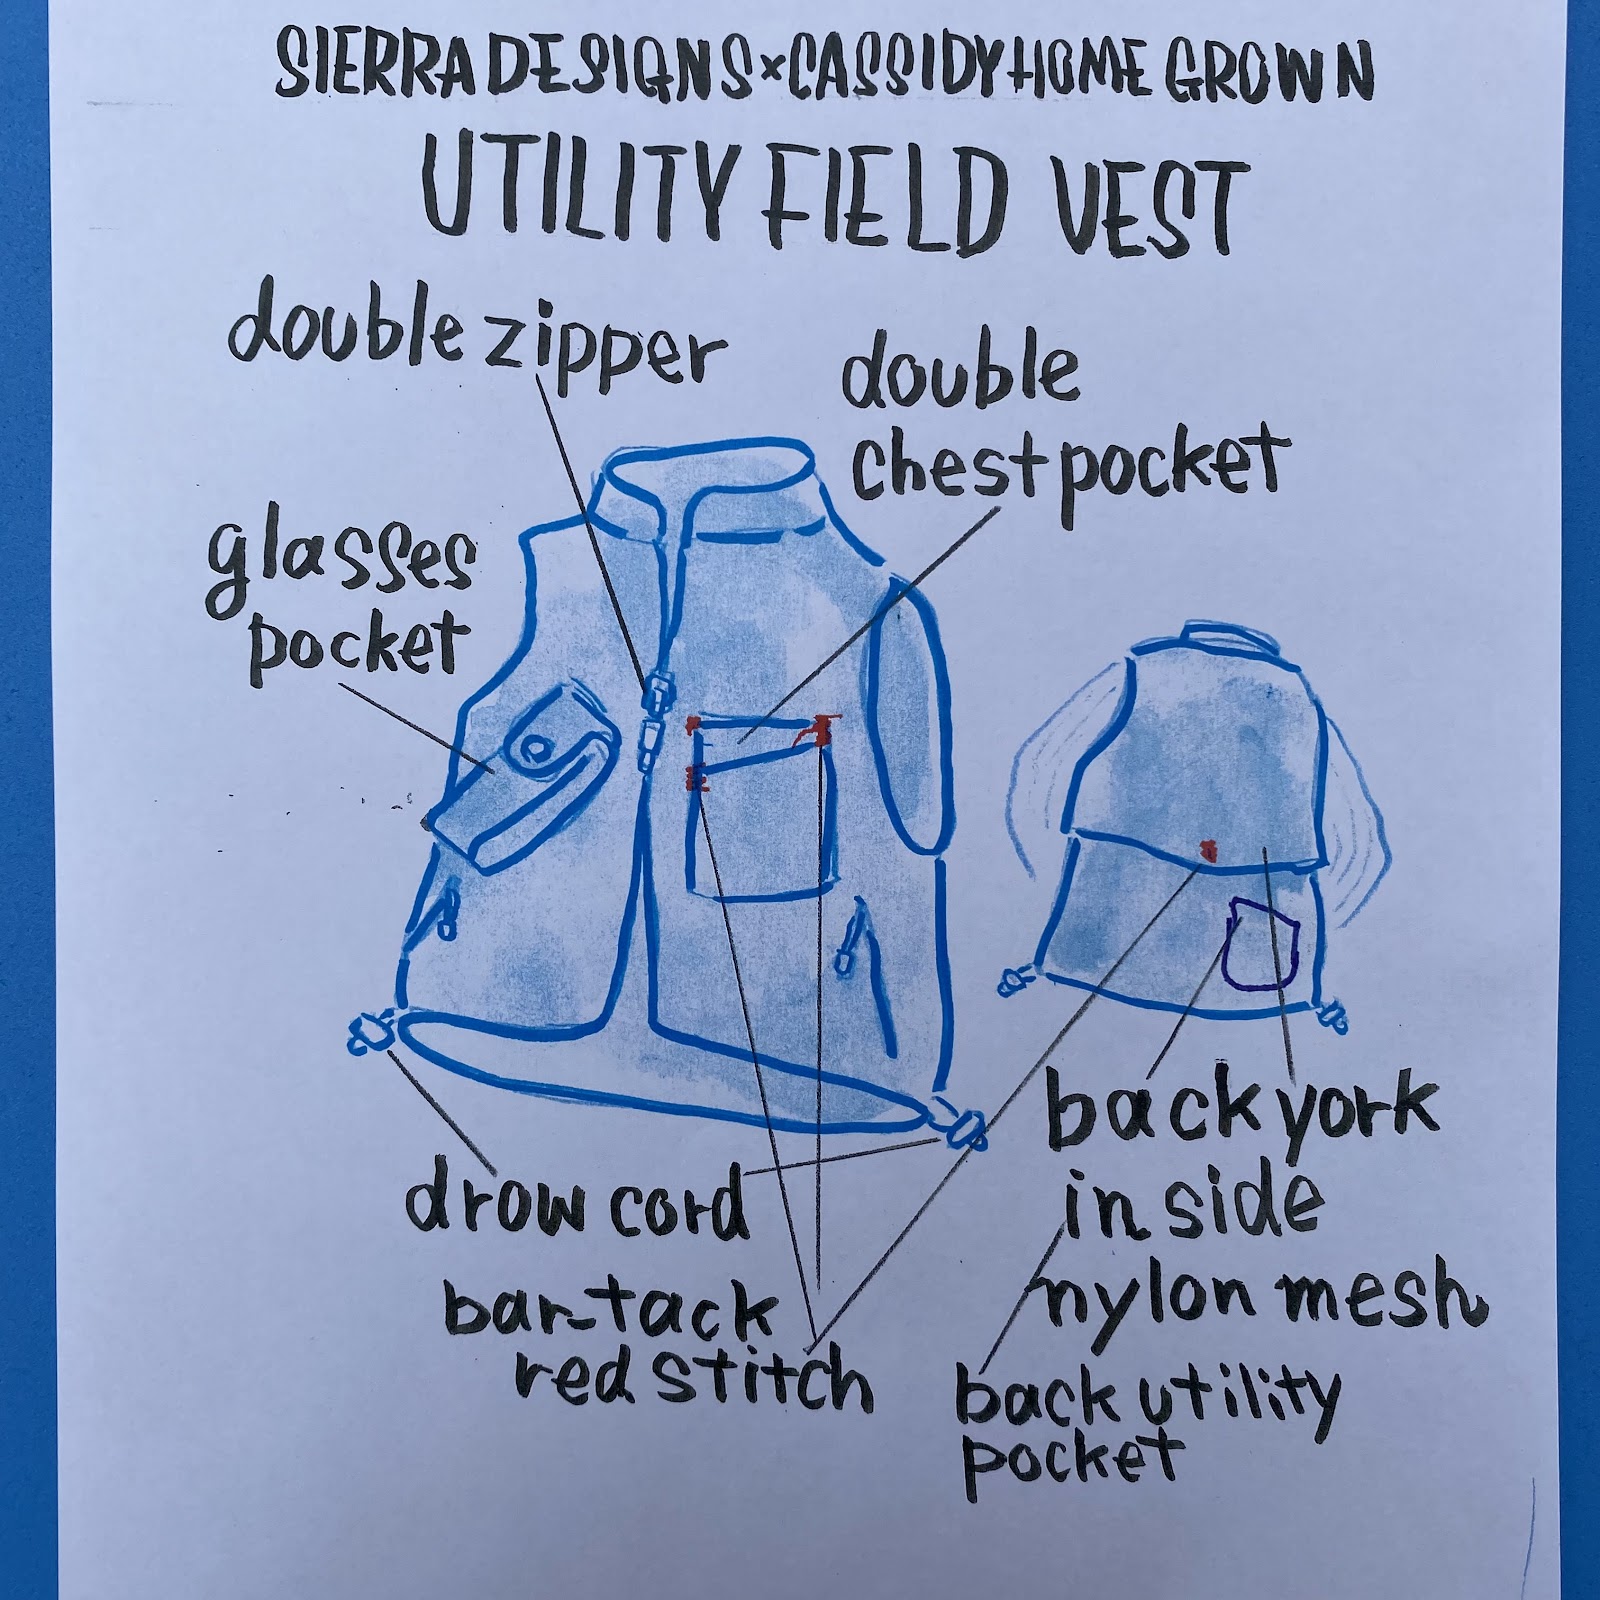 SIERRA DESIGNS×CASSIDY HOME GROWN
UTILITY FIELD VEST
double zipper
double
chest pocket
glasses
pocket
drow cord
bar-tack
red stitch
back york
in side
nylon mesh
back utility
pocket